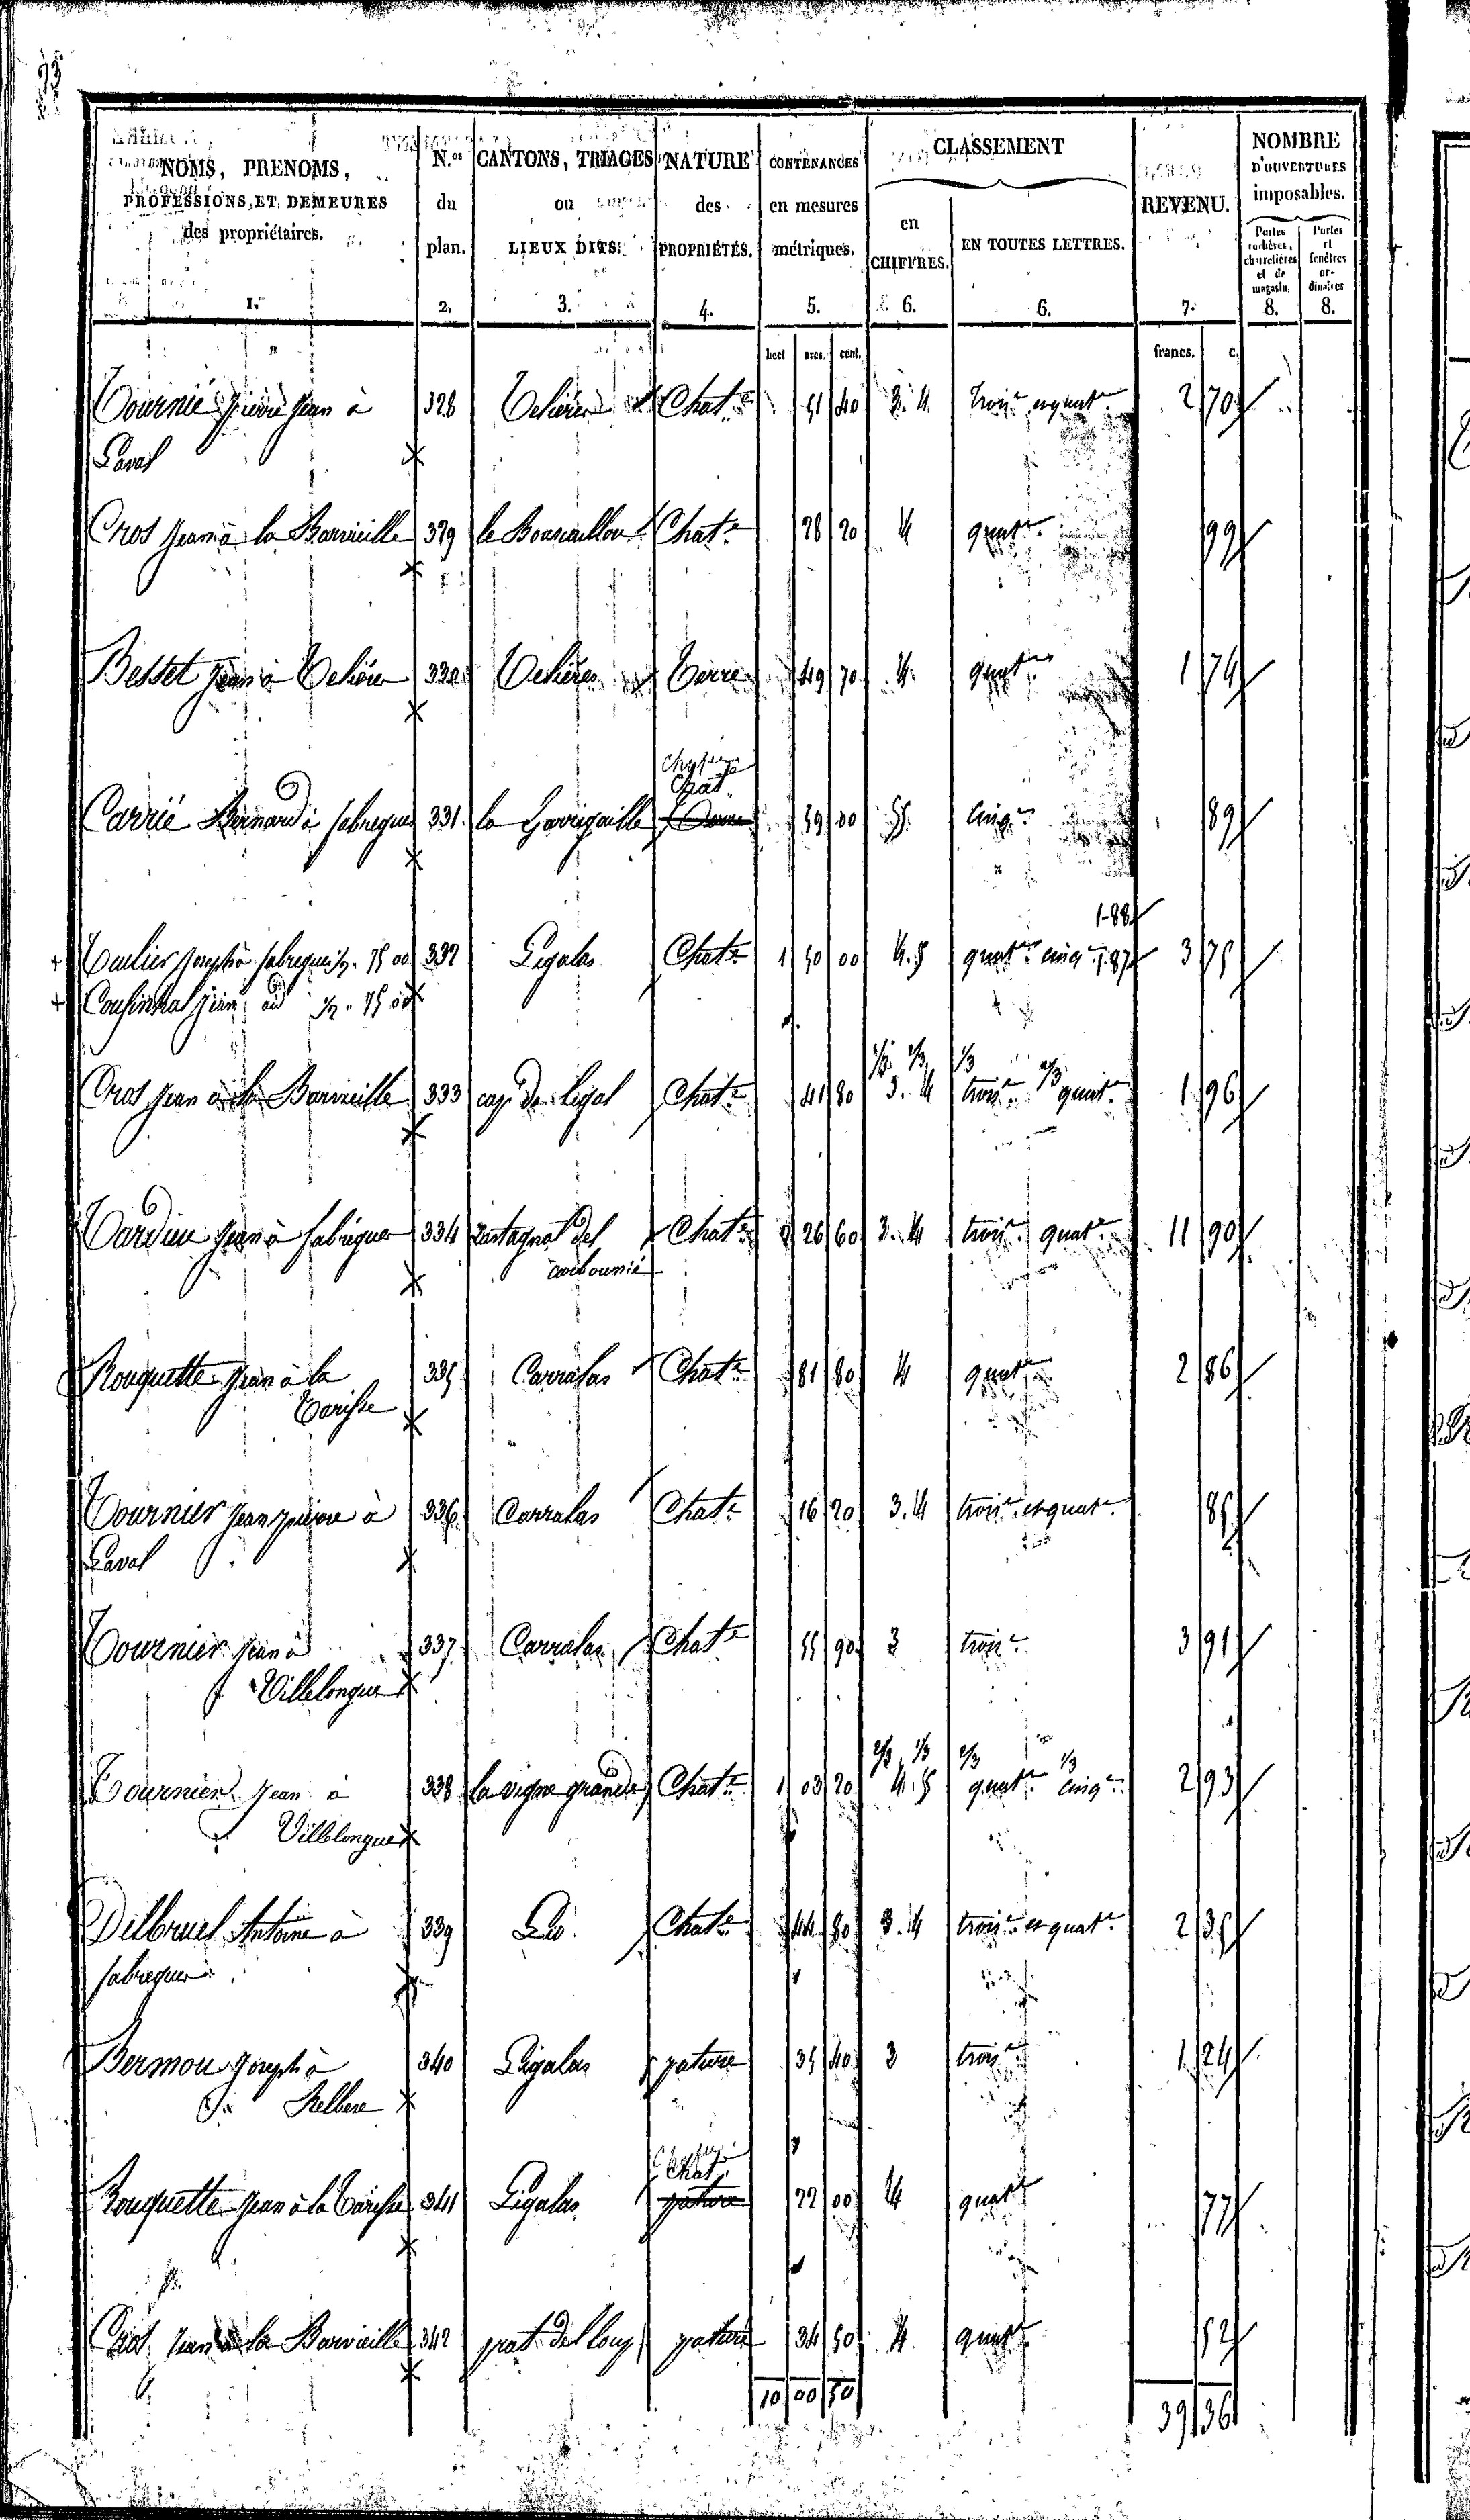 93
NOMS, PRENOMS, PROFESSIONS, ET DEMEURES des propriétaires. 1.
N.os du plan. 2.
CANTONS, TRIAGES ou LIEUX DITS. 3.
NATURE des PROPRIÉTÉS. 4.
CONTENANCES en mesures métriques. 5.
CLASSEMENT
en CHIFFRES. 6.
EN TOUTES LETTRES. 6.
REVENU. 7.
NOMBRE D'OUVERTURES imposables.
Portes cochères, charretières et de magasin. 8.
Portes et fenêtres ordinaires 8.
hect ares. cent. francs. c.
Tournié pierre jean à 328 Chat.e 51 40 3. 4 trois.e et quat.e 2 70
Laval
Cros jean à la Barvieille 329 Chat.e 28 20 4 quat.e 99
Besset jean à 330 Terre 49 70 4. quat.e 1 74
Chat.
Carrié Bernard à fabregues 331 la Garrigaille Terre 59 00 5. cinq.e 89
1-88
joseph à fabregues 1/2. 75 00 332 Ligalas Chat.e 1 50 00 4.5 quat.e cinq.e 1.87 3 75
jean id 1/2. 75 00
1/3 2/3 1/3 2/3
Cros jean à la Barvieille 333 cap de ligal Chat.e 41 80 3. 4 trois.e quat.e 1 96
Tardieu jean à fabregues 334 castagnal del Chat.e 2 26 60 3. 4 trois.e quat.e 11 90
carbounié
Rouquette jean à la 335 Carralas Chat.e 81 80 4 quat.e 2 86
Tournier jean pierre à 336 Carralas Chat.e 16 20 3. 4 trois.e et quat.e 85
Laval
Tournier jean à 337 Carralas Chat.e 55 90 3 trois.e 3 91
Villelongue
2/3 1/3 2/3 1/3
Tournier jean à 338 la vigne grande Chat.e 1 03 20 4. 5 quat.e cinq.e 2 93
Villelongue
Delbruel Antoine à 339 Chat.e 44 80 3. 4 trois.e et quat.e 2 35
fabregues
Bermon joseph à 340 Ligalas pature 35 40 3 trois.e 1 24
Chat.
Rouquette jean à la 341 Ligalas pature 22 00 4 quat.e 77
Cros jean à la Barvieille 342 prat del loup pature 34 50 4 quat.e 52
10 00 50 39 36